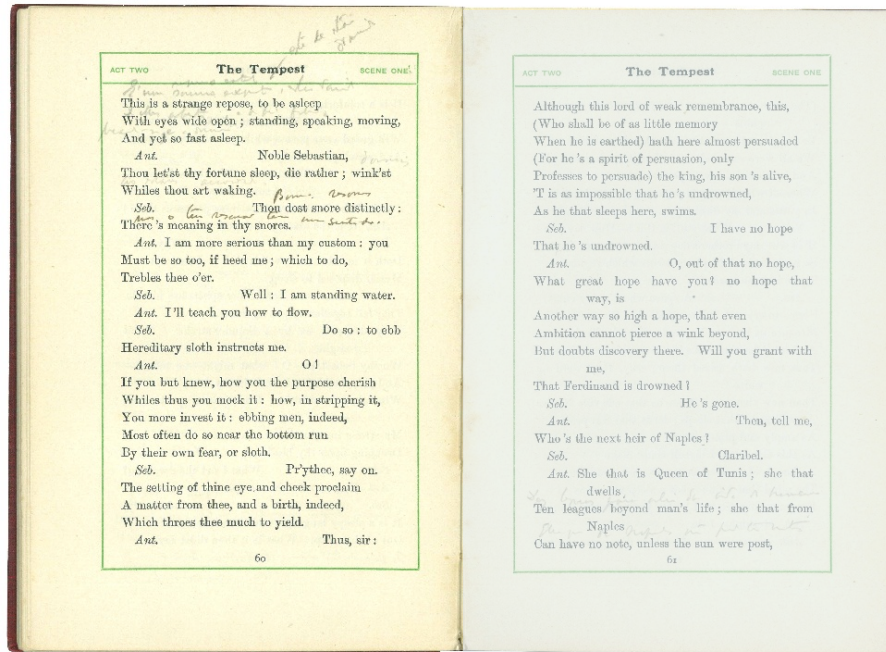 ACT TWO The Tempest SCENE ONE
This is a strange repose, to be asleep
With eyes wide open ; standing, speaking, moving,
And yet so fast asleep.
Ant. Noble Sebastian,
Thou let'st thy fortune sleep, die rather ; wink'st
Whiles thou art waking.
Seb. Thou dost snore distinctly :
There 's meaning in thy snores.
Ant. I am more serious than my custom : you
Must be so too, if heed me ; which to do,
Trebles thee o'er.
Seb. Well : I am standing water.
Ant. I'll teach you how to flow.
Seb. Do so : to ebb
Hereditary sloth instructs me.
Ant. O !
If you but knew, how you the purpose cherish
Whiles thus you mock it : how, in stripping it,
You more invest it : ebbing men, indeed,
Most often do so near the bottom run
By their own fear, or sloth.
Seb. Pr'ythee, say on.
The setting of thine eye and cheek proclaim
A matter from thee, and a birth, indeed,
Which throes thee much to yield.
Ant. Thus, sir :
60
ACT TWO The Tempest SCENE ONE
Although this lord of weak remembrance, this,
(Who shall be of as little memory
When he is earthed) hath here almost persuaded
(For he 's a spirit of persuasion, only
Professes to persuade) the king, his son 's alive,
'T is as impossible that he 's undrowned,
As he that sleeps here, swims.
Seb. I have no hope
That he 's undrowned.
Ant. O, out of that no hope,
What great hope have you ? no hope that
way, is
Another way so high a hope, that even
Ambition cannot pierce a wink beyond,
But doubts discovery there. Will you grant with
me,
That Ferdinand is drowned ?
Seb. He 's gone.
Ant. Then, tell me,
Who 's the next heir of Naples ?
Seb. Claribel.
Ant. She that is Queen of Tunis ; she that
dwells
Ten leagues beyond man's life ; she that from
Naples
Can have no note, unless the sun were post,
61